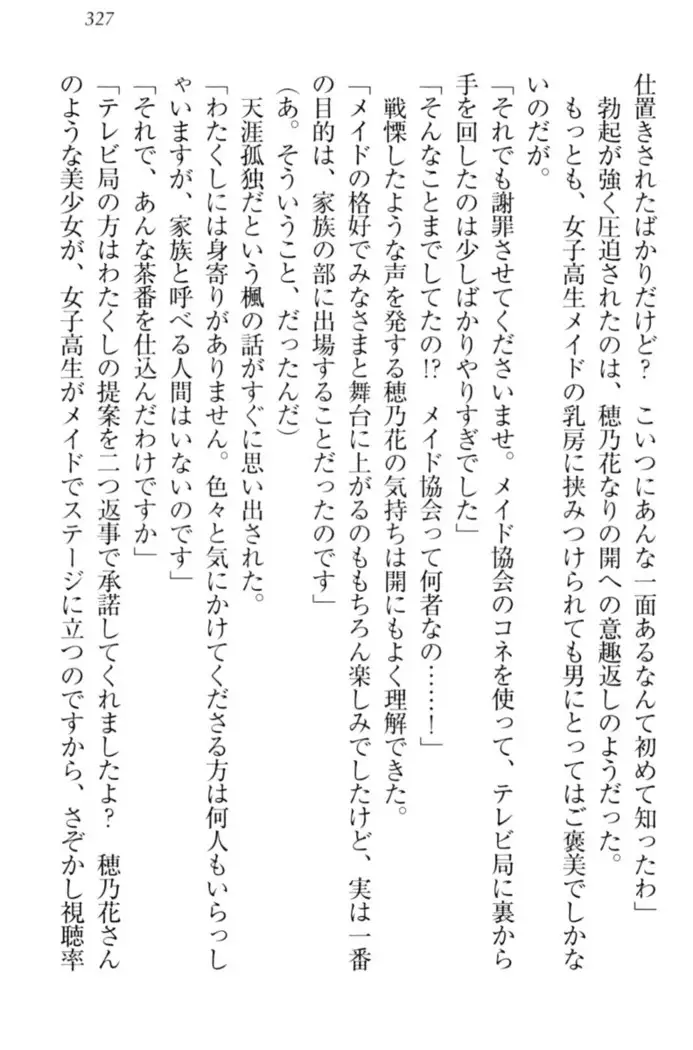 327
仕置きされたばかりだけど？　こいつにあんな一面あるなんて初めて知ったわ」
「それでも謝罪させてくださいませ。メイド協会のコネを使って、テレビ局に裏から
手を回したのは少しばかりやりすぎでした」
「そんなことまでしてたの!?　メイド協会って何者なの……！」
　戦慄したような声を発する穂乃花の気持ちは開にもよく理解できた。
「メイドの格好でみなさまと舞台に上がるのももちろん楽しみでしたけど、実は一番
の目的は、家族の部に出場することだったのです」
（あ。そういうこと、だったんだ）
　天涯孤独だという楓の話がすぐに思い出された。
「わたくしには身寄りがありません。色々と気にかけてくださる方は何人もいらっし
ゃいますが、家族と呼べる人間はいないのです」
「それで、あんな茶番を仕込んだわけですか」
「テレビ局の方はわたくしの提案を二つ返事で承諾してくれましたよ？　穂乃花さん
のような美少女が、女子高生がメイドでステージに立つのですから、さぞかし視聴率